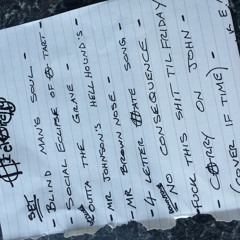 SET
- BLIND MAN'S SOUL -
- SOCIAL ECLIPSE OF
- OUTTA THE GRAVE -
- MR JOHNSON'S HELL HOUND'S
- MR BROWN NOSE -
- 4 LETTER HATE SONG -
- NO CONSEQUENCE -
NO SHIT TIL FRIDAY
FUCK THIS
- CARRY ON JOHN -
(OVER IF TIME)